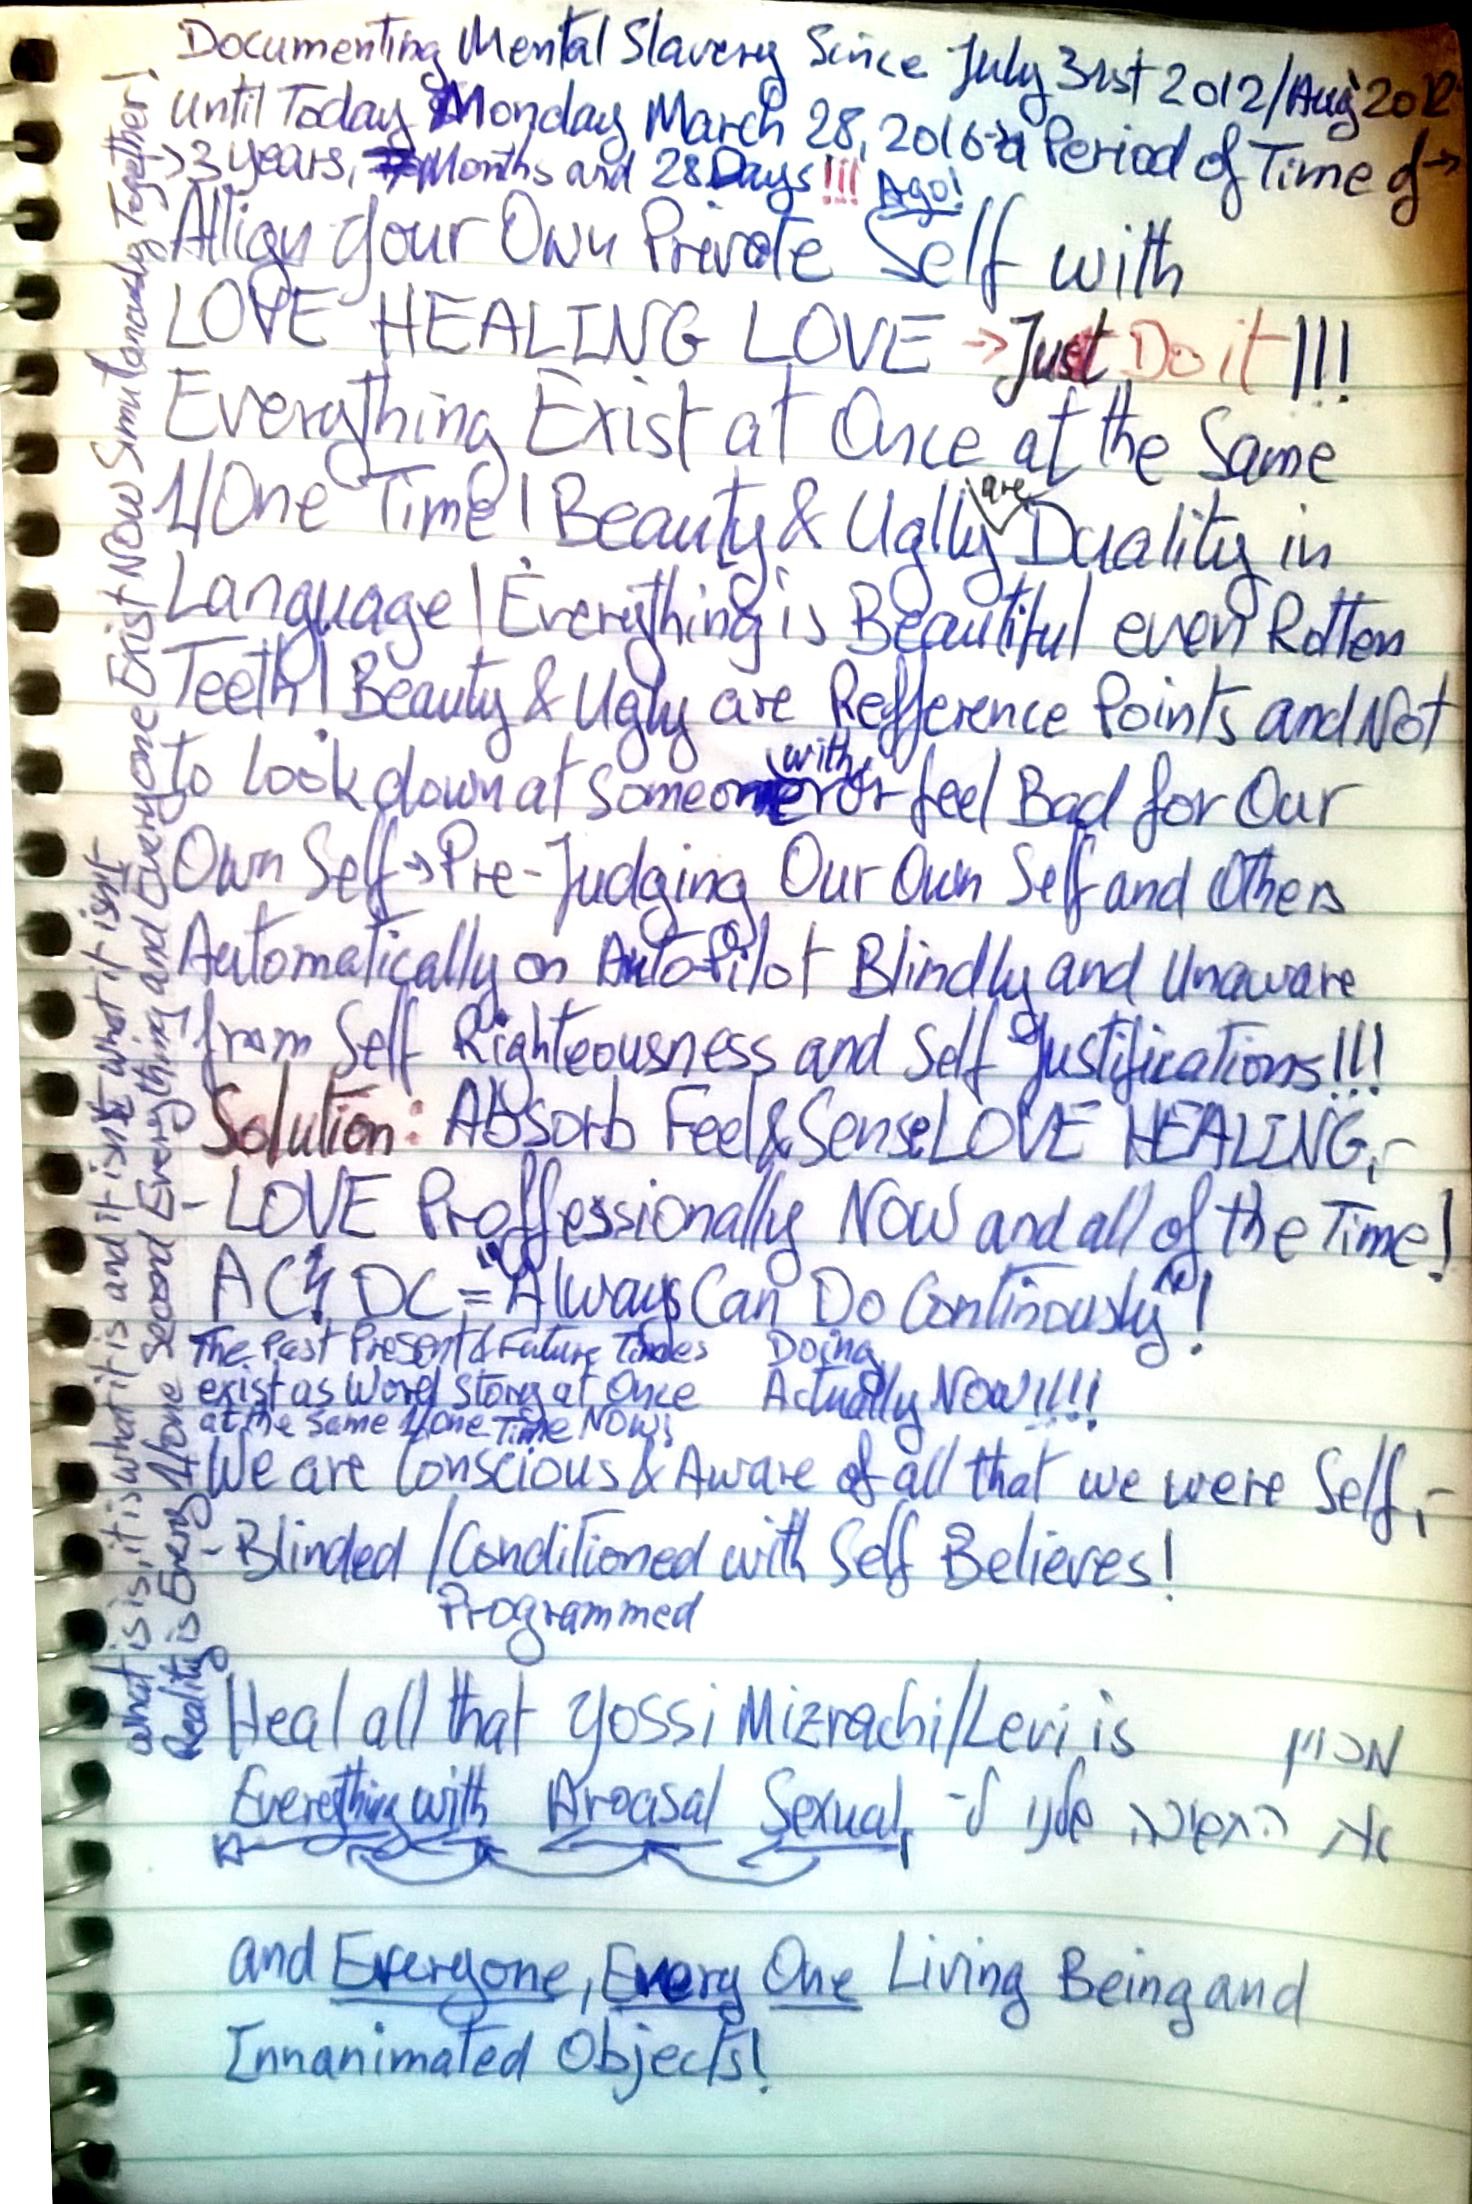 Documenting Mental Slavery Since July 31st 2012/Aug 2012
until Today Monday March 28, 2016→a Period of Time of→
→3 years, 7 Months and 28 Days!!! Ago!
Allign your Own Private Self with
LOVE HEALING LOVE →Just Do it!!!
Everything Exist at Once at the Same
1/One Time! Beauty & Uglly are Duality in
Language! Everything is Beautiful even Rotten
Teeth! Beauty & Ugly are Refference Points and Not
to look down at someone with or feel Bad for Our
Own Self→Pre-Judging Our Own Self and Others
Automatically on AutoPilot Blindly and Unaware
from Self Righteousness and Self Justifications!!!
Solution: Absorb Feel & Sense LOVE HEALING,-
- LOVE Proffessionally NOW and all of the Time!
AC DC = "Always Can Do Continously"!
The Past Present & Future Times Doing
exist as Word Story at Once Actually NOW!!!!
at the same 1/One Time NOW!
We are Conscious & Aware of all that we were Self,-
- Blinded /Conditioned with Self Believes!
Programmed
Heal all that Yossi Mizrachi/Levi is מכוון
Everething with Arousal Sexual, את התשיבה שלנו ל-
and Everyone, Every One Living Being and
Innanimated Objects!
what is is, it is what it is and it isn't what it isn't
Reality is Every 1/one Second Everything and Everyone Exist NOW Simultanously Together!